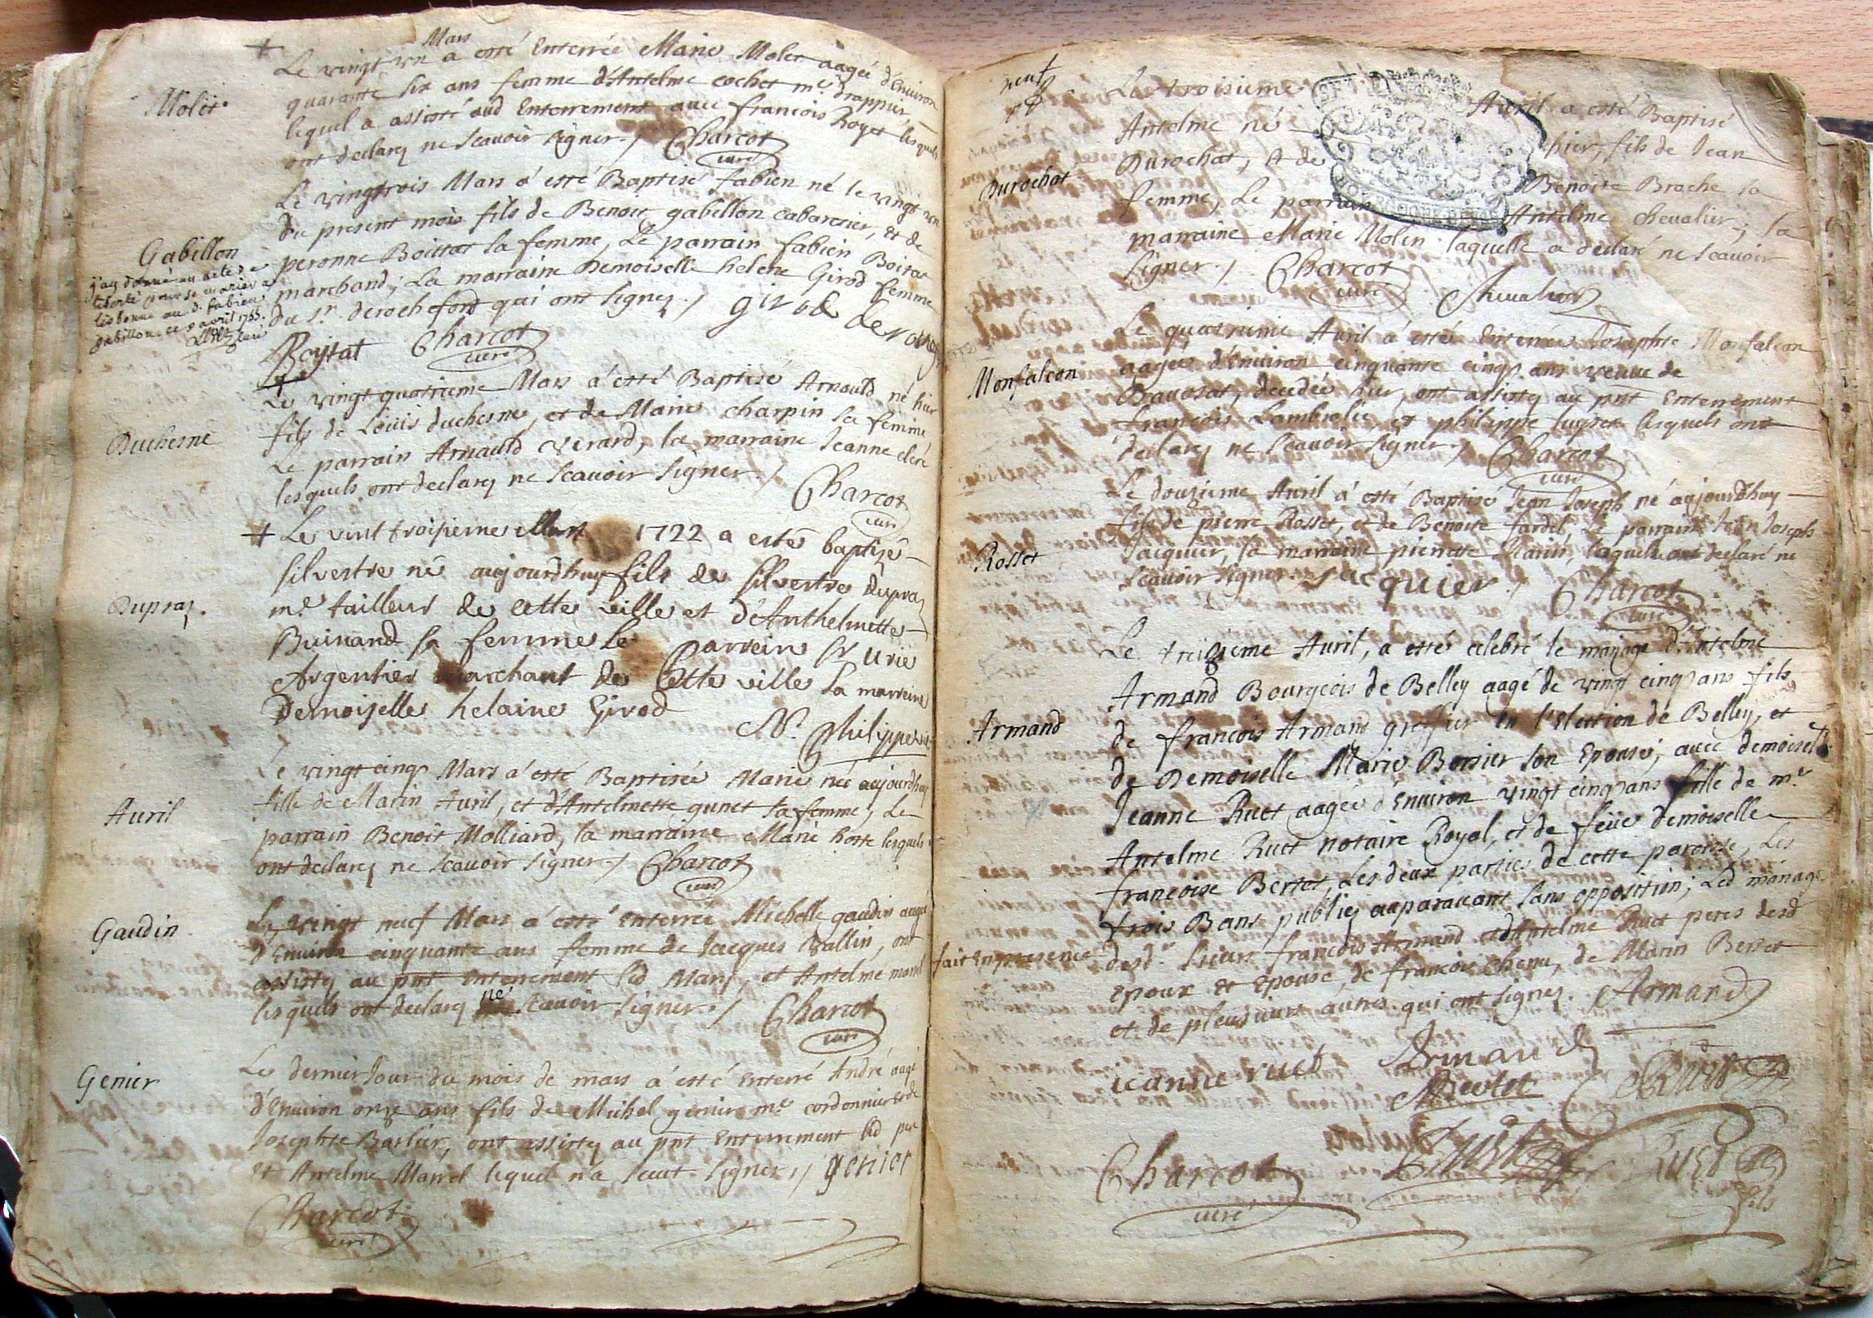 Molet
Mars
Le vingt un a esté Enterrée Marie Molet aagée d'Environ
quarante six ans femme d'Antelme cochet me drappier
lequel a assisté aud Enterrement avec francois Royet lesquels
ont declarez ne scavoir signer./ Charcot
curé
Gabillon
j'ay donné un acte de
liberté pour se marier a
au d. fabien
gabillon ce avril 1755.
Le vingtrois Mars a esté Baptisé fabien né le vingt un
du present mois fils de Benoit gabillon cabaretier, et de
peronne Boittat sa femme, Le parrain fabien Boitat
marchand; La marraine Demoiselle helene Girod femme
du sr. derochefort qui ont signez./ girod de roche
Boytat Charcot
curé
Duchesne
Le vingt quatrieme Mars a esté Baptisé Arnauld né hier
fils de Louis duchesne, et de Marie charpin sa femme,
Le parrain Arnauld Verard, la marraine Jeanne cleré
lesquels ont declarez ne scavoir signer./
Charcot
curé
Dupraz.
Le vint troisieme Mars 1722 a esté baptizé
silvestre né aujourdhuy fils de silvestre dupraz
me. tailleur de cette ville et d'Anthelmette
Buinand sa femme Le parrein sr urie
Argentier marchant de Cette ville La marreine
Demoiselle helaine Girod
Philippe
Avril
Le vingt cinq Mars a esté Baptisée Marie née aujourdhuy
fille de Marin Avril, et d'Antelmette gunet sa femme, Le
parrain Benoit Molliard, la marraine Marie hoste lesquels
ont declarez ne scavoir signer./ Charcot
curé
Gaudin
Le vingt neuf Mars a esté Enterrée Michelle gaudin aagée
d'Environ cinquante ans femme de Jacques Vallin, ont
assistez au pnt Enterrement led Mary, et Antelme morel
lesquels ont declarez ne scavoir signer./ Charcot
curé
Genier
Le dernier Jour du mois de mars a esté Enterré André aagé
d'Environ onze ans fils de Michel genier me cordonnier et de
Josephte Barlier, ont assistez au pnt Enterrement led pere
et Antelme Marrel lequel n'a sceut signer./ genier
Charcot
curé
neuf
Durochat
Le troisieme Avril a esté Baptisé
Antelme né hier, fils de Jean
Durochat, et de Benoite Broche sa
femme, Le parrain Antelme chevalier; la
marraine Marie Molin laquelle a declaré ne scavoir
signer./ Charcot Chevalier
curé
Monfalcon
Le quatrieme Avril a esté Enterrée Josephte Monfalcon
aagée d'Environ cinquante cinq ans veuve de
decedée hier, ont assistez au pnt Enterrement
francois et philippe lesquels ont
declarez ne scavoir signer./ Charcot
curé
Rosset
Le douzieme Avril a esté Baptisé Jean Joseph né aujourdhuy
fils de pierre Rosset, et de Benoite fardel, Le parrain Jean Joseph
Jacquier, la marraine pierrette laquelle declaré ne
scavoir signer. Jacquier./ Charcot
curé
Armand
Le treisieme Avril, a esté celebré le mariage d'Antelme
Armand Bourgeois de Belley aagé de vingt cinq ans fils
de francois Armand greffier en l'Election de Belley, et
de Demoiselle Marie Bersier son Epouse; avec demoiselle
Jeanne Ruet aagée d'Environ vingt cinq ans fille de me.
Antelme Ruet notaire Royal, et de feüe demoiselle
francoise Bertet, Les deux parties de cette paroisse, Les
trois Bans publiez auparavant sans opposition; Led mariage
fait en presence desd. sieurs francois Armand et d'Antelme Ruet peres desd
Epoux et Epouse, de francois chenu, de Marin Bertet
et de plusieurs autres qui ont signez. Armand
jeanne ruet Armand
Bertet
Charcot
curé
Ruet
fils